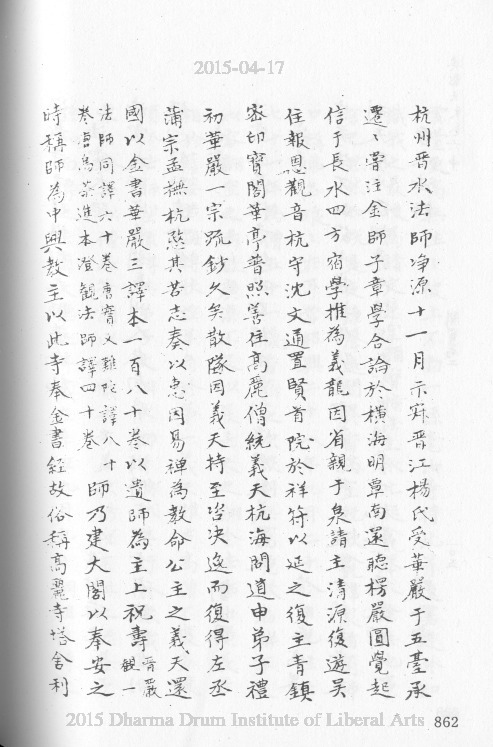 2015-04-17
杭州晋水法師净源十一月示寂晋江楊氏受華嚴于五臺承
遷遷嘗注金師子章學合論於橫海明覃南還聽楞嚴圓覺起
信于長水四方宿學推為義龍因省親于泉請主清源復遊吳
住報恩觀音杭守沈文通置賢首院於祥符以延之復主青鎮
密印寶閣華亭普照善住高麗僧統義天杭海問道申弟子禮
初華嚴一宗疏鈔久矣散隊因義天持至咨决逸而復得左丞
蒲宗孟撫杭愍其苦志奏以惠因易禪為教命公主之義天還
國以金書華嚴三譯本一百八十卷以遺師為主上祝壽晋嚴觀一
法師同譯六十卷唐實叉難陀譯八十
卷唐烏荼進本澄觀法師譯四十卷師乃建大閣以奉安之
時稱師為中興教主以此寺奉金書經故俗稱高麗寺塔舍利
2015 Dharma Drum Institute of Liberal Arts 862